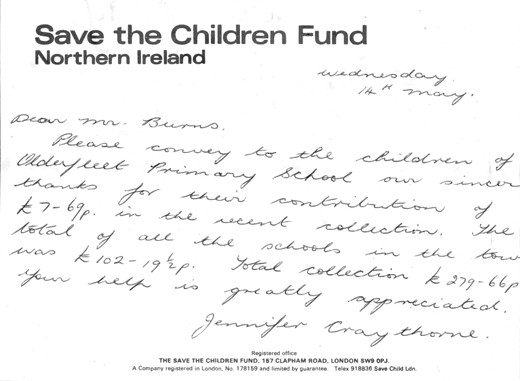 Save the Children Fund
Northern Ireland
Wednesday.
14th May.
Dear Mr. Burns.
Please convey to the children of
Olderfleet Primary School our sincer
thanks for their contribution of
£7-69p. in the recent collection. The
total of all the schools in the tow
was £102-19½p. Total collection £279-66p
Your help is greatly appreciated.
Jennifer Craythorne.
Registered office
THE SAVE THE CHILDREN FUND, 157 CLAPHAM ROAD, LONDON SW9 0PJ.
A Company registered in London, No. 178159 and limited by guarantee. Telex 918836 Save Child Ldn.